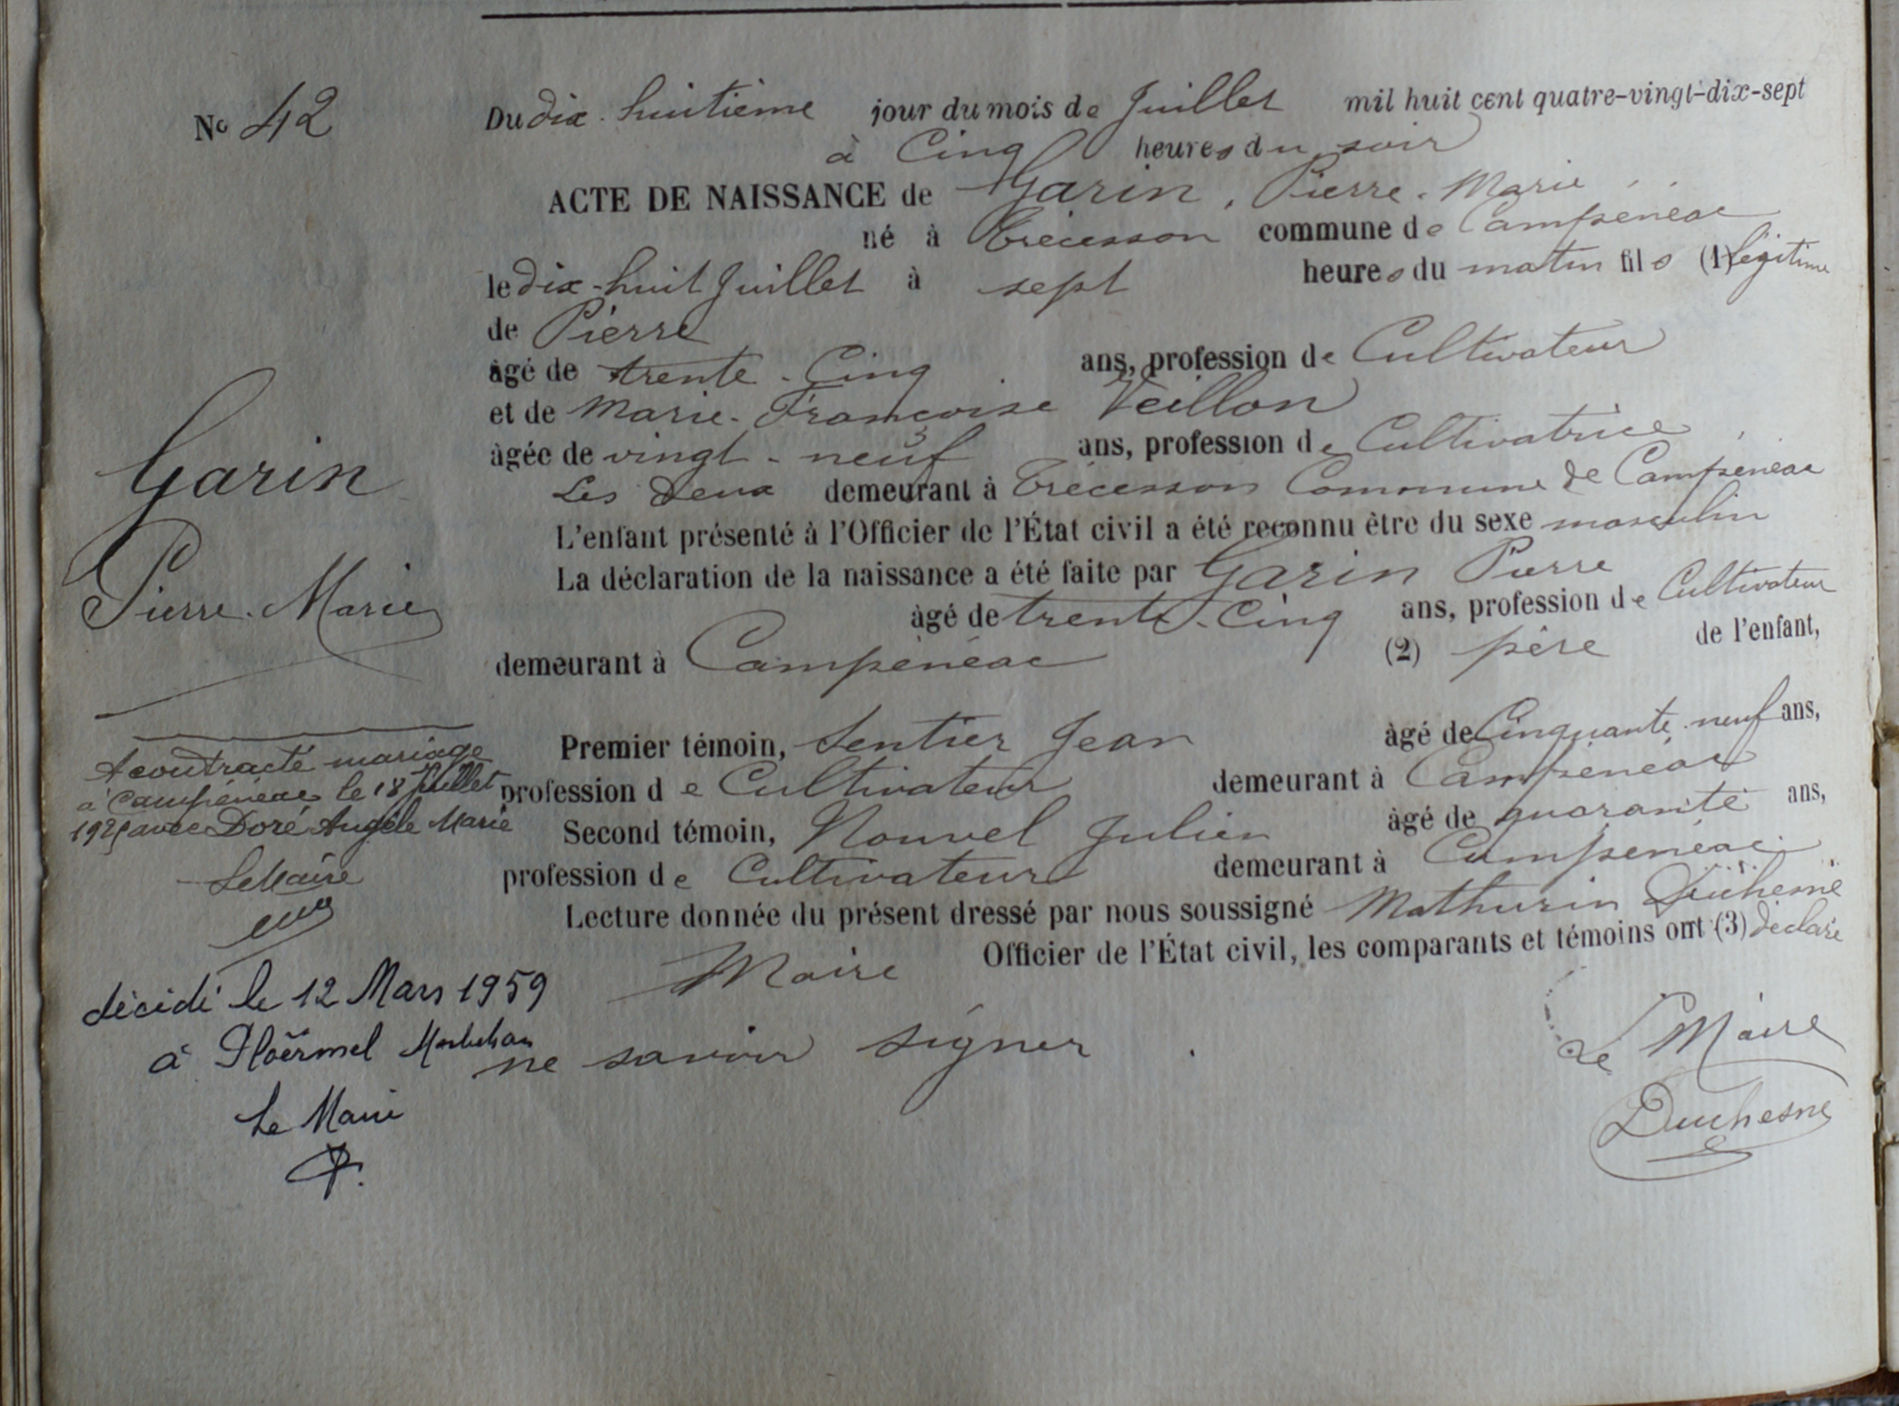 No 42
Du dix-huitième jour du mois de Juillet mil huit cent quatre-vingt-dix-sept
à Cinq heures du soir
ACTE DE NAISSANCE de Garin, Pierre-Marie
né à Trécesson commune de Campénéac
le dix-huit Juillet à sept heures du matin fils (1) légitime
de Pierre
âgé de trente-Cinq ans, profession de Cultivateur
et de Marie-Françoise Veillon
âgée de vingt-neuf ans, profession de Cultivatrice
Les Deux demeurant à Trécesson Commune de Campénéac
L'enfant présenté à l'Officier de l'État civil a été reconnu être du sexe masculin
La déclaration de la naissance a été faite par Garin Pierre
âgé de trente-Cinq ans, profession de Cultivateur
demeurant à Campénéac (2) père de l'enfant,
Premier témoin, Sentier Jean âgé de Cinquante-neuf ans,
profession de Cultivateur demeurant à Campénéac
Second témoin, Nouvel Julien âgé de quarante ans,
profession de Cultivateur demeurant à Campénéac
Lecture donnée du présent dressé par nous soussigné Mathurin Duchesne
Maire Officier de l'État civil, les comparants et témoins ont (3) déclaré
ne savoir signer
Le Maire
Duchesne
Garin
Pierre-Marie
A contracté mariage
à Campénéac le 18 Juillet
avec Doré Angèle Marie
Le Maire
décédé le 12 Mars 1959
à Ploërmel Morbihan
Le Maire